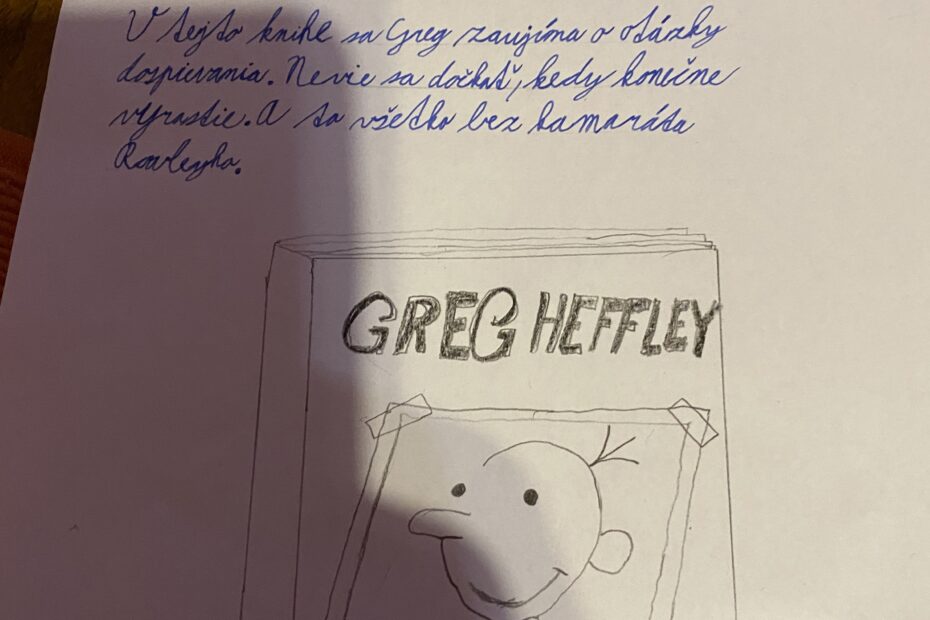 V tejto knihe sa Greg zaujíma o otázky
dospievania. Nevie sa dočkať, kedy konečne
vyrastie. A to všetko bez kamaráta
Rowleyho.
GREG HEFFLEY